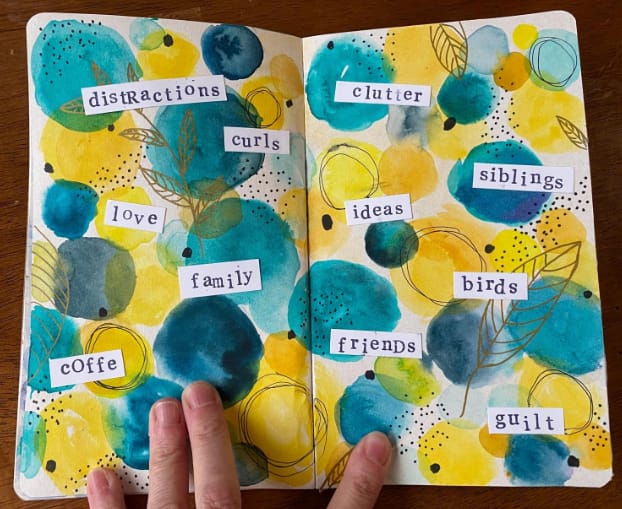 distRactions
curls
love
family
cOffe
clutter
siblings
ideas
birds
frienDs
guilt